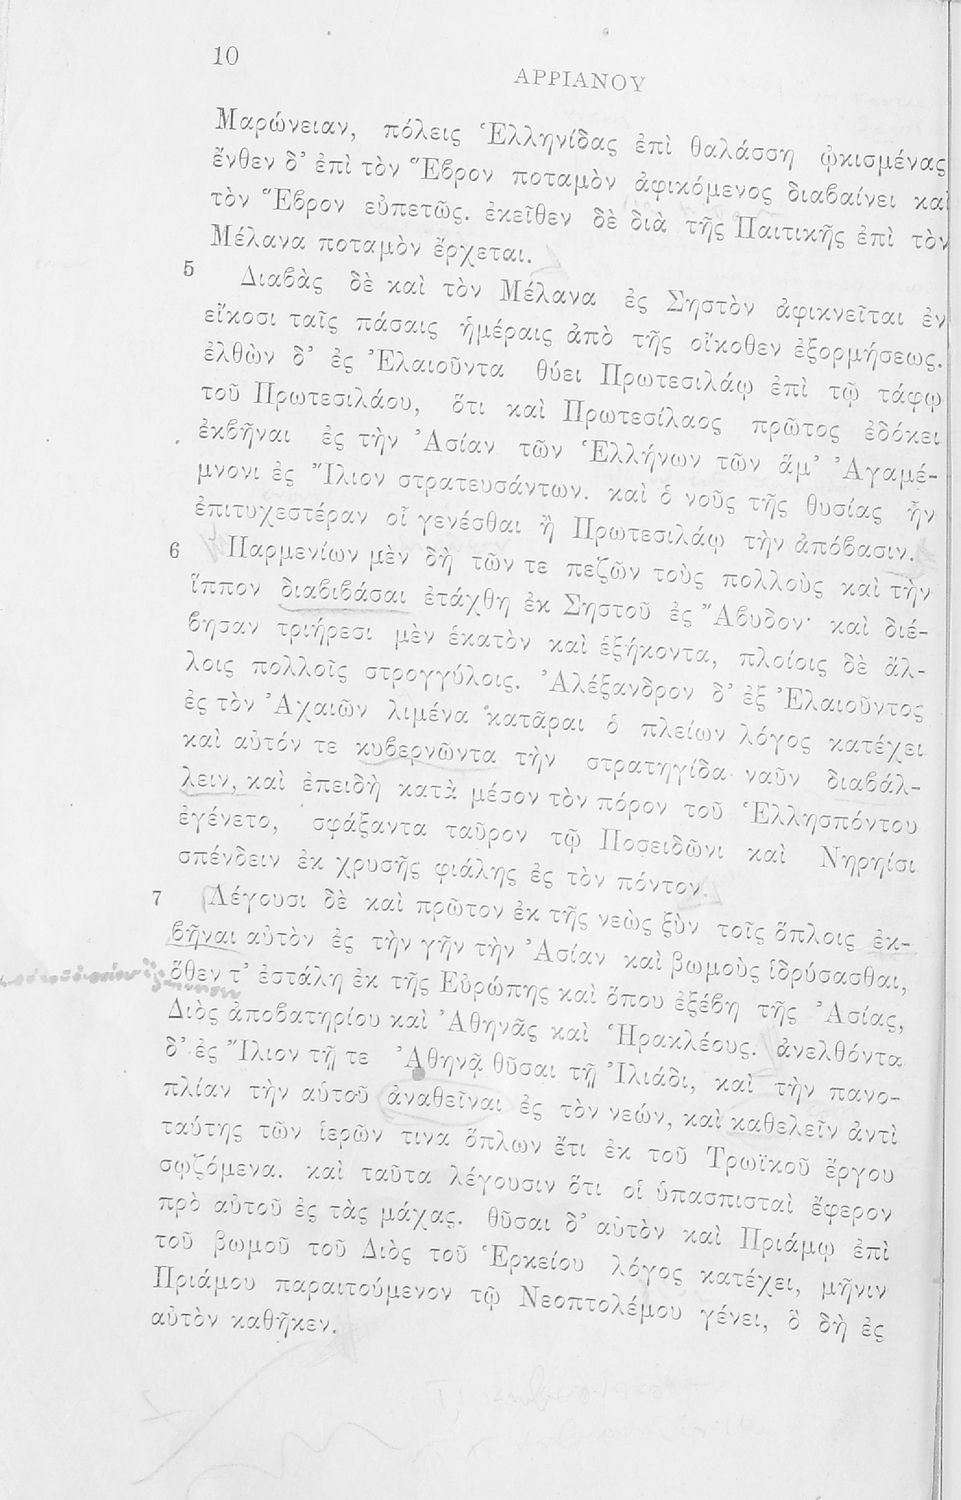 10
ΑΡΡΙΑΝΟΥ
Μαρώνειαν, πόλεις Ἑλληνίδας ἐπὶ θαλάσσῃ ᾠκισμένας
ἔνθεν δ’ ἐπὶ τὸν Ἕϐρον ποταμὸν ἀφικόμενος διαϐαίνει καὶ
τὸν Ἕϐρον εὐπετῶς. ἐκεῖθεν δὲ διὰ τῆς Παιτικῆς ἐπὶ τὸν
Μέλανα ποταμὸν ἔρχεται.
5 Διαϐὰς δὲ καὶ τὸν Μέλανα ἐς Σηστὸν ἀφικνεῖται ἐν
εἴκοσι ταῖς πάσαις ἡμέραις ἀπὸ τῆς οἴκοθεν ἐξορμήσεως.
ἐλθὼν δ’ ἐς Ἐλαιοῦντα θύει Πρωτεσιλάῳ ἐπὶ τῷ τάφῳ
τοῦ Πρωτεσιλάου, ὅτι καὶ Πρωτεσίλαος πρῶτος ἐδόκει
ἐκϐῆναι ἐς τὴν Ἀσίαν τῶν Ἑλλήνων τῶν ἅμ’ Ἀγαμέ-
μνονι ἐς Ἴλιον στρατευσάντων. καὶ ὁ νοῦς τῆς θυσίας ἦν
ἐπιτυχεστέραν οἷ γενέσθαι ἢ Πρωτεσιλάῳ τὴν ἀπόϐασιν.
6 Παρμενίων μὲν δὴ τῶν τε πεζῶν τοὺς πολλοὺς καὶ τὴν
ἵππον διαϐιϐάσαι ἐτάχθη ἐκ Σηστοῦ ἐς Ἄϐυδον· καὶ διέ-
ϐησαν τριήρεσι μὲν ἑκατὸν καὶ ἑξήκοντα, πλοίοις δὲ ἄλ-
λοις πολλοῖς στρογγύλοις. Ἀλέξανδρον δ’ ἐξ Ἐλαιοῦντος
ἐς τὸν Ἀχαιῶν λιμένα κατᾶραι ὁ πλείων λόγος κατέχει
καὶ αὐτόν τε κυϐερνῶντα τὴν στρατηγίδα ναῦν διαϐάλ-
λειν, καὶ ἐπειδὴ κατὰ μέσον τὸν πόρον τοῦ Ἑλλησπόντου
ἐγένετο, σφάξαντα ταῦρον τῷ Ποσειδῶνι καὶ Νηρηίσι
σπένδειν ἐκ χρυσῆς φιάλης ἐς τὸν πόντον.
7 Λέγουσι δὲ καὶ πρῶτον ἐκ τῆς νεὼς ξὺν τοῖς ὅπλοις ἐκ-
ϐῆναι αὐτὸν ἐς τὴν γῆν τὴν Ἀσίαν καὶ βωμοὺς ἱδρύσασθαι,
ὅθεν τ’ ἐστάλη ἐκ τῆς Εὐρώπης καὶ ὅπου ἐξέϐη τῆς Ἀσίας,
Διὸς ἀποϐατηρίου καὶ Ἀθηνᾶς καὶ Ἡρακλέους. ἀνελθόντα
δ’ ἐς Ἴλιον τῇ τε Ἀθηνᾷ θῦσαι τῇ Ἰλιάδι, καὶ τὴν πανο-
πλίαν τὴν αὑτοῦ ἀναθεῖναι ἐς τὸν νεών, καὶ καθελεῖν ἀντὶ
ταύτης τῶν ἱερῶν τινα ὅπλων ἔτι ἐκ τοῦ Τρωϊκοῦ ἔργου
σῳζόμενα. καὶ ταῦτα λέγουσιν ὅτι οἱ ὑπασπισταὶ ἔφερον
πρὸ αὐτοῦ ἐς τὰς μάχας. θῦσαι δ’ αὐτὸν καὶ Πριάμῳ ἐπὶ
τοῦ βωμοῦ τοῦ Διὸς τοῦ Ἑρκείου λόγος κατέχει, μῆνιν
Πριάμου παραιτούμενον τῷ Νεοπτολέμου γένει, ὃ δὴ ἐς
αὐτὸν καθῆκεν.